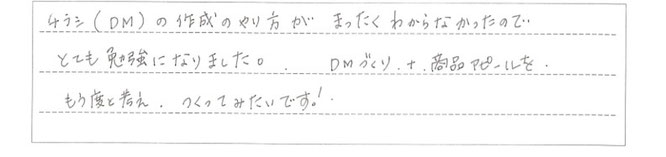 チラシ(DM)の作成のやり方が まったくわからなかったので
とても勉強になりました。 DMづくり + 商品アピールを
もう度と考え、つくってみたいです!